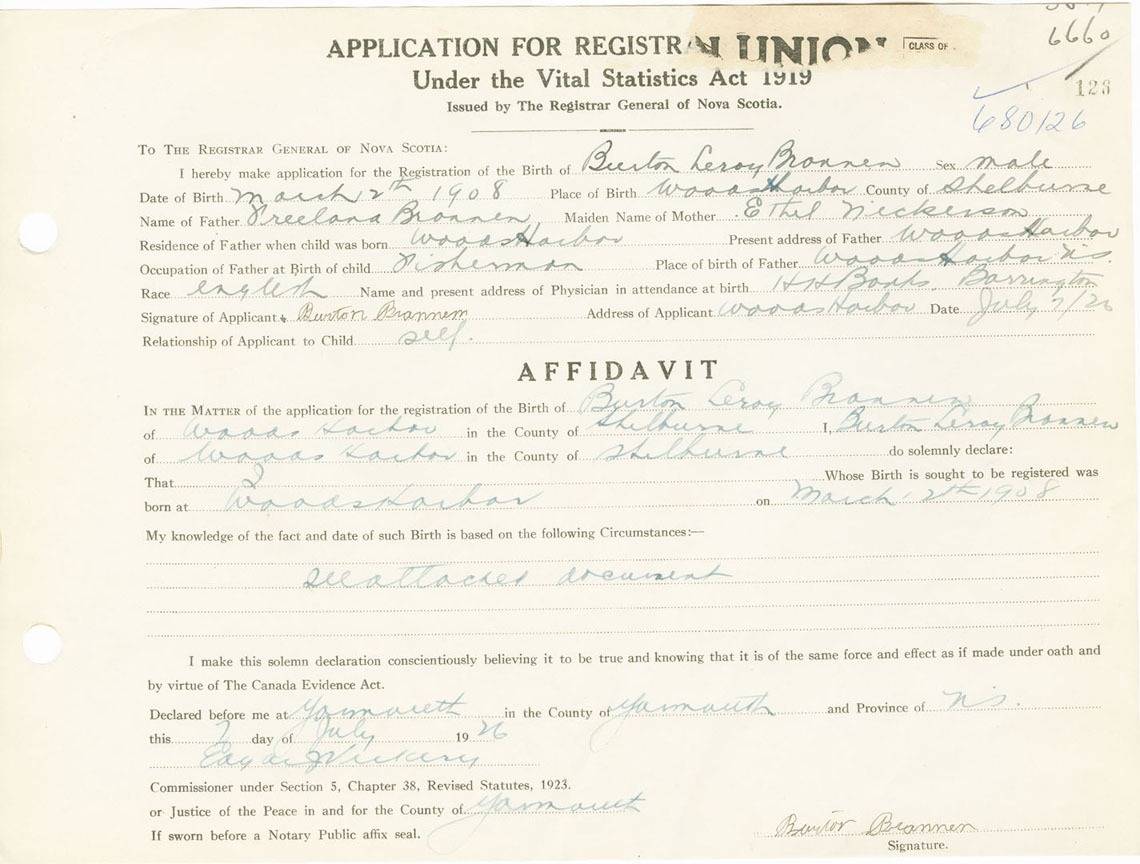 6660
APPLICATION FOR REGISTRA UNION CLASS OF
Under the Vital Statistics Act 1919
126
Issued by The Registrar General of Nova Scotia.
680126
TO THE REGISTRAR GENERAL OF NOVA SCOTIA:
I hereby make application for the Registration of the Birth of Burton Leroy Brannen Sex male
Date of Birth March 2th 1908 Place of Birth Woods Harbor County of Shelburne
Name of Father Freeland Brannen Maiden Name of Mother Ethel Nickerson
Residence of Father when child was born Woods Harbor Present address of Father Woods Harbor
Occupation of Father at Birth of child Fisherman Place of birth of Father Woods Harbor N.S.
Race English Name and present address of Physician in attendance at birth H H Banks Barrington
Signature of Applicant Burton Brannen Address of Applicant Woods Harbor Date July 7/26
Relationship of Applicant to Child self.
AFFIDAVIT
IN THE MATTER of the application for the registration of the Birth of Burton Leroy Brannen
of Woods Harbor in the County of Shelburne I, Burton Leroy Brannen
of Woods Harbor in the County of Shelburne do solemnly declare:
That I Whose Birth is sought to be registered was
born at Woods Harbor on March 2th 1908
My knowledge of the fact and date of such Birth is based on the following Circumstances:—
see attached document
I make this solemn declaration conscientiously believing it to be true and knowing that it is of the same force and effect as if made under oath and
by virtue of The Canada Evidence Act.
Declared before me at Yarmouth in the County of Yarmouth and Province of N.S.
this 7 day of July 1926
Edgar Vickery
Commissioner under Section 5, Chapter 38, Revised Statutes, 1923.
or Justice of the Peace in and for the County of Yarmouth
If sworn before a Notary Public affix seal.
Burton Brannen
Signature.